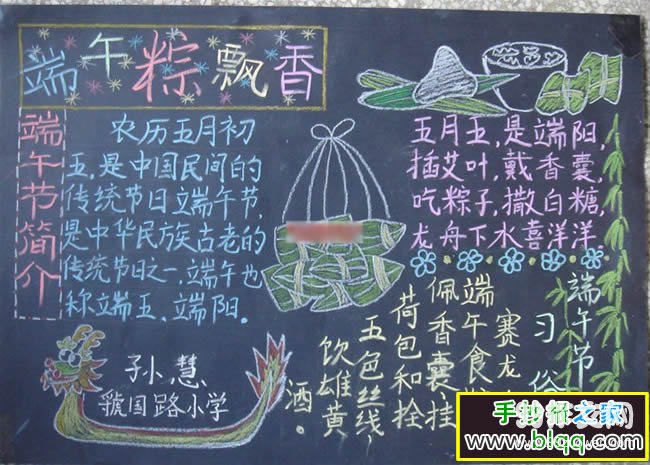 端午粽飘香
端午节简介
农历五月初
五,是中国民间的
传统节日端午节,
是中华民族古老的
传统节日之一,端午也
称端五,端阳.
五月五,是端阳,
插艾叶,戴香囊,
吃粽子,撒白糖,
龙舟下水喜洋洋.
端午节
习俗
赛龙
端午食
佩香囊,挂
荷包和拴
五色丝线,
饮雄黄
酒。
孙慧
虢国路小学
手抄报之家
www.blqq.com